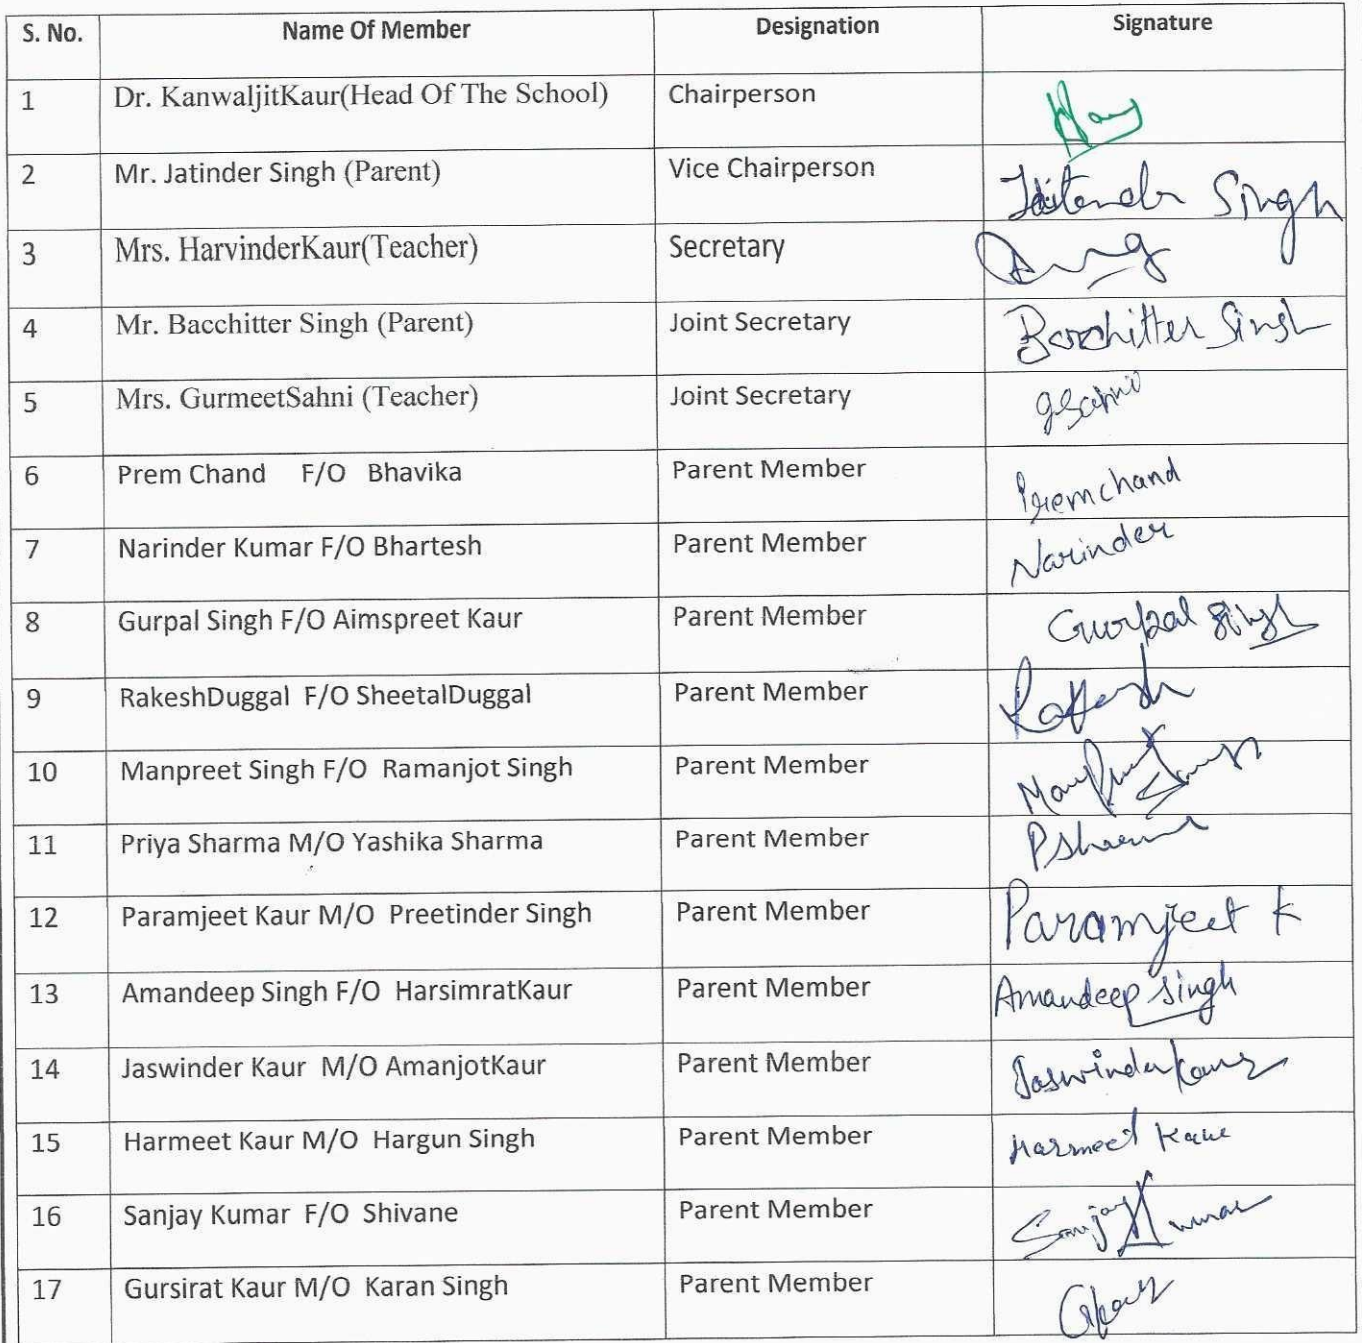 S. No. Name Of Member Designation Signature
1 Dr. KanwaljitKaur(Head Of The School) Chairperson
2 Mr. Jatinder Singh (Parent) Vice Chairperson Singh
3 Mrs. HarvinderKaur(Teacher) Secretary
4 Mr. Bacchitter Singh (Parent) Joint Secretary Bacchitter Singh
5 Mrs. GurmeetSahni (Teacher) Joint Secretary GSahni
6 Prem Chand F/O Bhavika Parent Member Premchand
7 Narinder Kumar F/O Bhartesh Parent Member Narinder
8 Gurpal Singh F/O Aimspreet Kaur Parent Member Gurpal Singh
9 RakeshDuggal F/O SheetalDuggal Parent Member Rakesh
10 Manpreet Singh F/O Ramanjot Singh Parent Member
11 Priya Sharma M/O Yashika Sharma Parent Member PSharma
12 Paramjeet Kaur M/O Preetinder Singh Parent Member Paramjeet K
13 Amandeep Singh F/O HarsimratKaur Parent Member Amandeep Singh
14 Jaswinder Kaur M/O AmanjotKaur Parent Member Jaswinder Kaur
15 Harmeet Kaur M/O Hargun Singh Parent Member Harmeet Kaur
16 Sanjay Kumar F/O Shivane Parent Member Sanjay Kumar
17 Gursirat Kaur M/O Karan Singh Parent Member GKaur